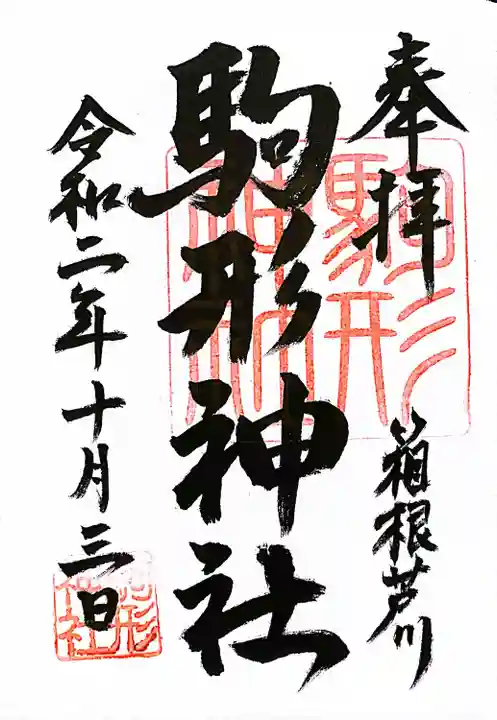 奉拝
箱根芦川
駒形神社
令和二年十月三日
駒形
神社
駒形
神社